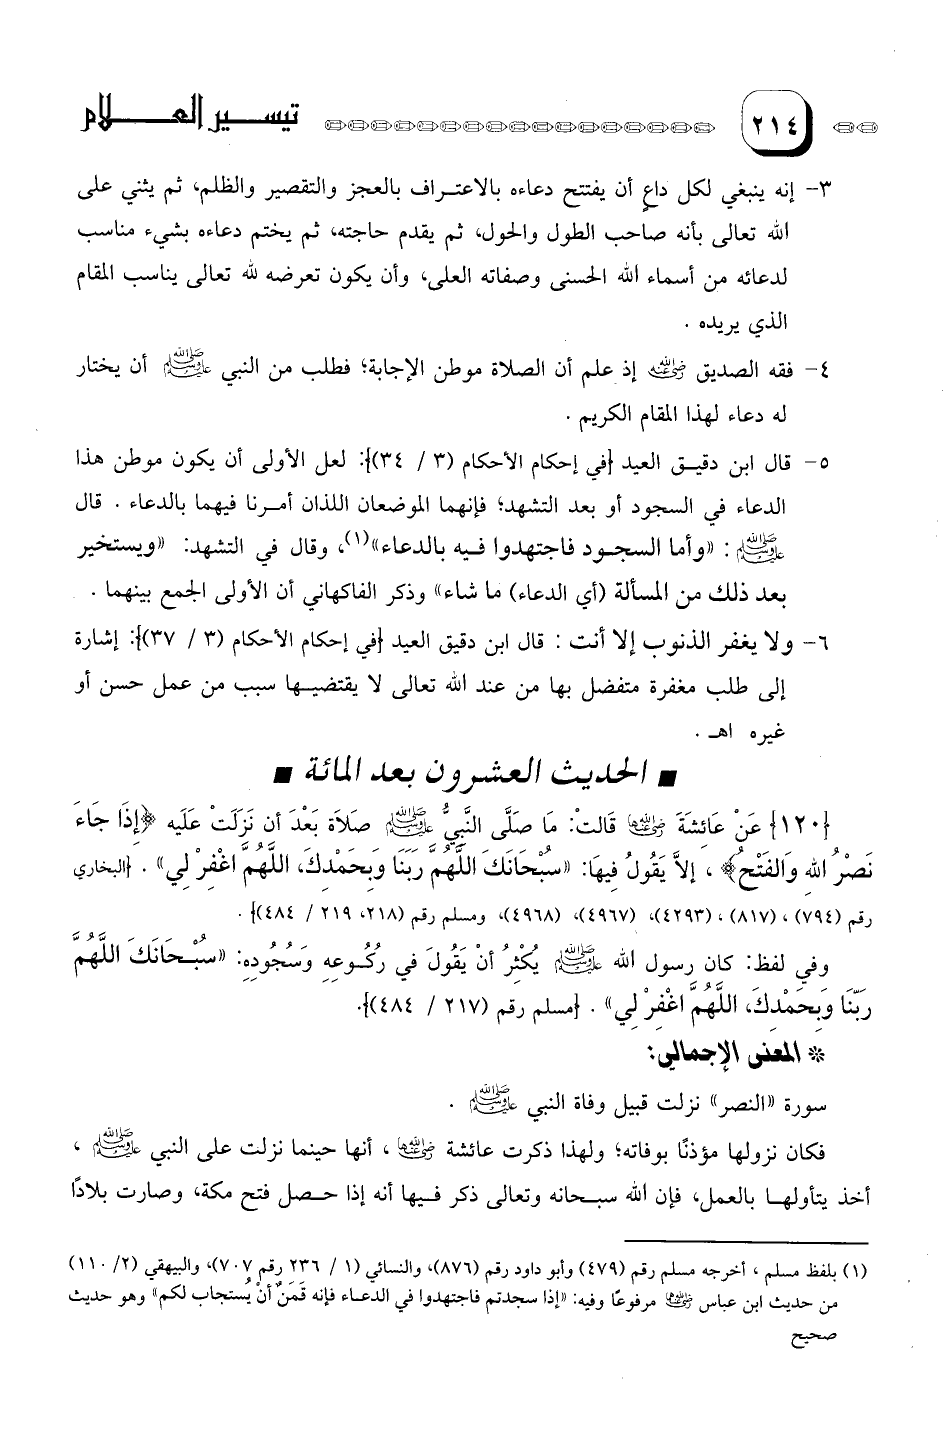 ٢١٤ تيسير العلام
٣- إنه ينبغي لكل داعٍ أن يفتتح دعاءه بالاعتراف بالعجز والتقصير والظلم، ثم يثني على
الله تعالى بأنه صاحب الطول والحول، ثم يقدم حاجته، ثم يختم دعاءه بشيء مناسب
لدعائه من أسماء الله الحسنى وصفاته العلى، وأن يكون تعرضه لله تعالى يناسب المقام
الذي يريده .
٤- فقه الصديق رضي الله عنه إذ علم أن الصلاة موطن الإجابة؛ فطلب من النبي ﷺ أن يختار
له دعاء لهذا المقام الكريم .
٥- قال ابن دقيق العيد {في إحكام الأحكام (٣ / ٣٤)}: لعل الأولى أن يكون موطن هذا
الدعاء في السجود أو بعد التشهد؛ فإنهما الموضعان اللذان أمرنا فيهما بالدعاء . قال
ﷺ : «وأما السجود فاجتهدوا فيه بالدعاء»(١)، وقال في التشهد: «ويستخير
بعد ذلك من المسألة (أي الدعاء) ما شاء» وذكر الفاكهاني أن الأولى الجمع بينهما .
٦- ولا يغفر الذنوب إلا أنت : قال ابن دقيق العيد {في إحكام الأحكام (٣ / ٣٧)}: إشارة
إلى طلب مغفرة متفضل بها من عند الله تعالى لا يقتضيها سبب من عمل حسن أو
غيره اهـ .
■ الحديث العشرون بعد المائة ■
{١٢٠} عَنْ عَائِشَةَ رضي الله عنها قَالتْ: مَا صَلَّى النَّبِيُّ ﷺ صَلَاةً بَعْدَ أن نَزَلَتْ عَلَيه ﴿إِذَا جَاءَ
نَصْرُ الله وَالفَتْحُ﴾ ، إلاَّ يَقُولُ فِيهَا: «سبْحَانَكَ اللَّهُمَّ رَبَنَا وَبِحَمْدِكَ، اللَّهُمَّ اغْفِرْ لِي» . {البخاري
رقم (٧٩٤) ، (٨١٧) ، (٤٢٩٣)، (٤٩٦٧)، (٤٩٦٨)، ومسلم رقم (٢١٨، ٢١٩ / ٤٨٤)} .
وفي لفظ: كان رسول الله ﷺ يُكْثِرُ أنْ يَقُولَ في رُكُوعِهِ وَسُجُودِهِ: «سبْحَانَكَ اللَّهُمَّ
رَبَّنَا وَبِحَمْدِكَ، اللَّهُمَّ اغْفِرْ لِي» . {مسلم رقم (٢١٧ / ٤٨٤)}.
* المعنى الإجمالي:
سورة «النصر» نزلت قبيل وفاة النبي ﷺ .
فكان نزولها مؤذنًا بوفاته؛ ولهذا ذكرت عائشة رضي الله عنها ، أنها حينما نزلت على النبي ﷺ ،
أخذ يتأولها بالعمل، فإن الله سبحانه وتعالى ذكر فيها أنه إذا حصل فتح مكة، وصارت بلادًا
(١) بلفظ مسلم ، أخرجه مسلم رقم (٤٧٩) وأبو داود رقم (٨٧٦)، والنسائي (١ / ٢٣٦ رقم ٧٠٧)، والبيهقي (٢/ ١١٠)
من حديث ابن عباس رضي الله عنهما مرفوعًا وفيه: «إذا سجدتم فاجتهدوا في الدعاء فإنه قَمَنٌ أنْ يُستجاب لكم» وهو حديث
صحيح